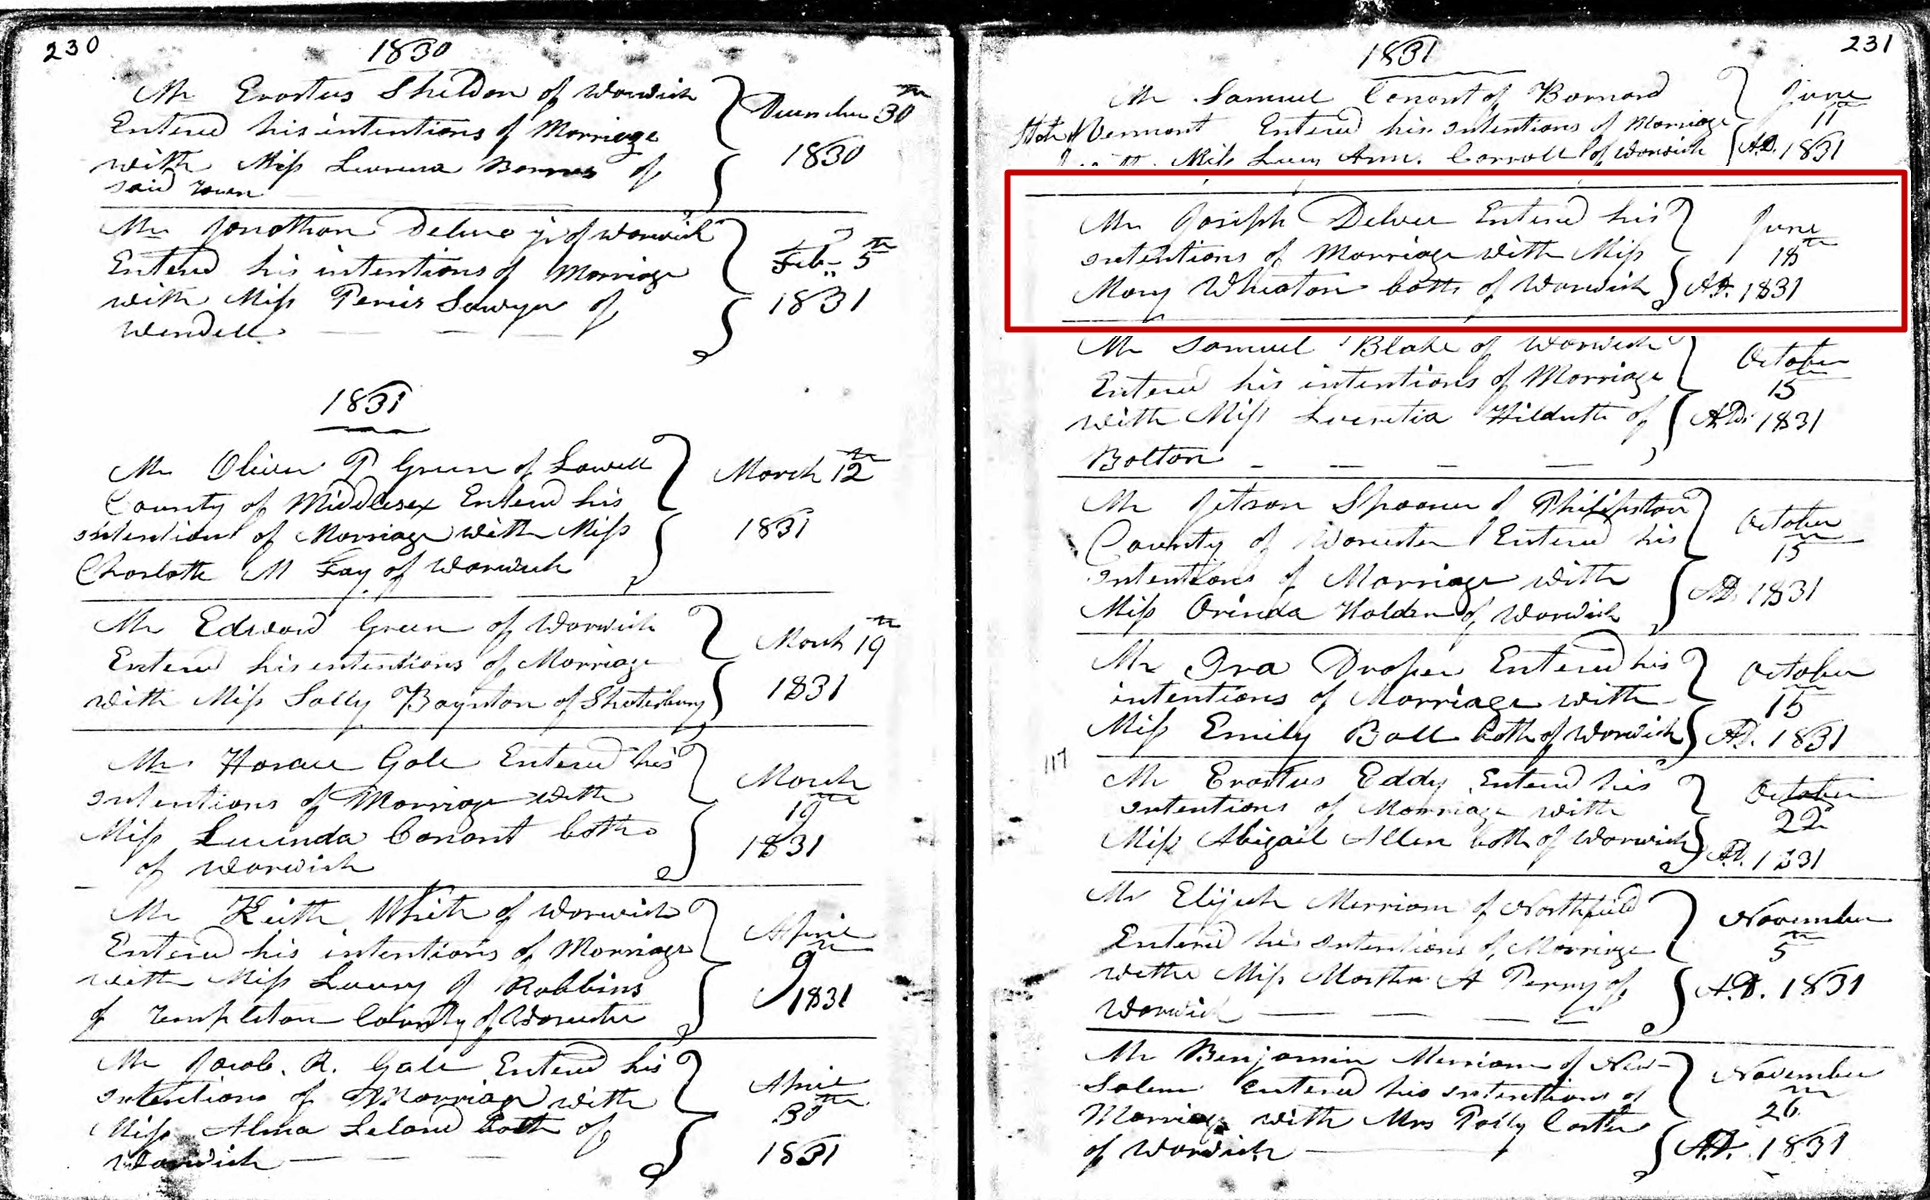 230
1830
Mr Erastus Sheldon of Warwick
Entered his intentions of Marriage
with Miss Lurena Barnes of
said Town
December 30th
1830
Mr Jonathan Delvee jr of Warwick
Entered his intentions of Marriage
with Miss Persis Sawyer of
Wendell
Feb. 5th
1831
1831
Mr Oliver P Green of Lowell
County of Middlesex Entered his
intention of Marriage with Miss
Charlotte M Fay of Warwick
March 12th
1831
Mr Edward Green of Warwick
Entered his intentions of Marriage
with Miss Sally Boynton of Shutesbury
March 19th
1831
Mr Horace Gale Entered his
intentions of Marriage with
Miss Lucinda Conant both
of Warwick
March
19th
1831
Mr Keith White of Warwick
Entered his intentions of Marriage
with Miss Laury G Robbins
of Templeton County of Worcester
April
9th
1831
Mr Jacob. R. Gale Entered his
intentions of Marriage with
Miss Alma Leland both of
Warwick
April
30th
1831
231
1831
Mr Samuel Conant of Barnard
State of Vermont Entered his intentions of Marriage
with Miss Lucy Ann. Carroll of Warwick
June
11th
A.D. 1831
Mr Joseph Delvee Entered his
intentions of Marriage with Miss
Mary Wheaton both of Warwick
June
18th
A.D. 1831
Mr Samuel Blake of Warwick
Entered his intentions of Marriage
with Miss Lucretia Hildreth of
Bolton
October
15
A.D. 1831
Mr Jetson Spooner of Philipston
County of Worcester Entered his
intentions of Marriage with
Miss Orinda Holden of Warwick
October
15th
A.D. 1831
Mr Ira Draper Entered his
intentions of Marriage with
Miss Emily Ball both of Warwick
October
15th
A.D. 1831
117
Mr Erastus Eddy Entered his
intentions of Marriage with
Miss Abigail Allen both of Warwick
October
22
A.D. 1831
Mr Elijah Merriam of Northfield
Entered his intentions of Marriage
with Miss Martha A Perry of
Warwick
November
5th
A.D. 1831
Mr Benjamin Merriam of New
Salem Entered his intentions of
Marriage with Mrs Polly Carter
of Warwick
November
26th
A.D. 1831